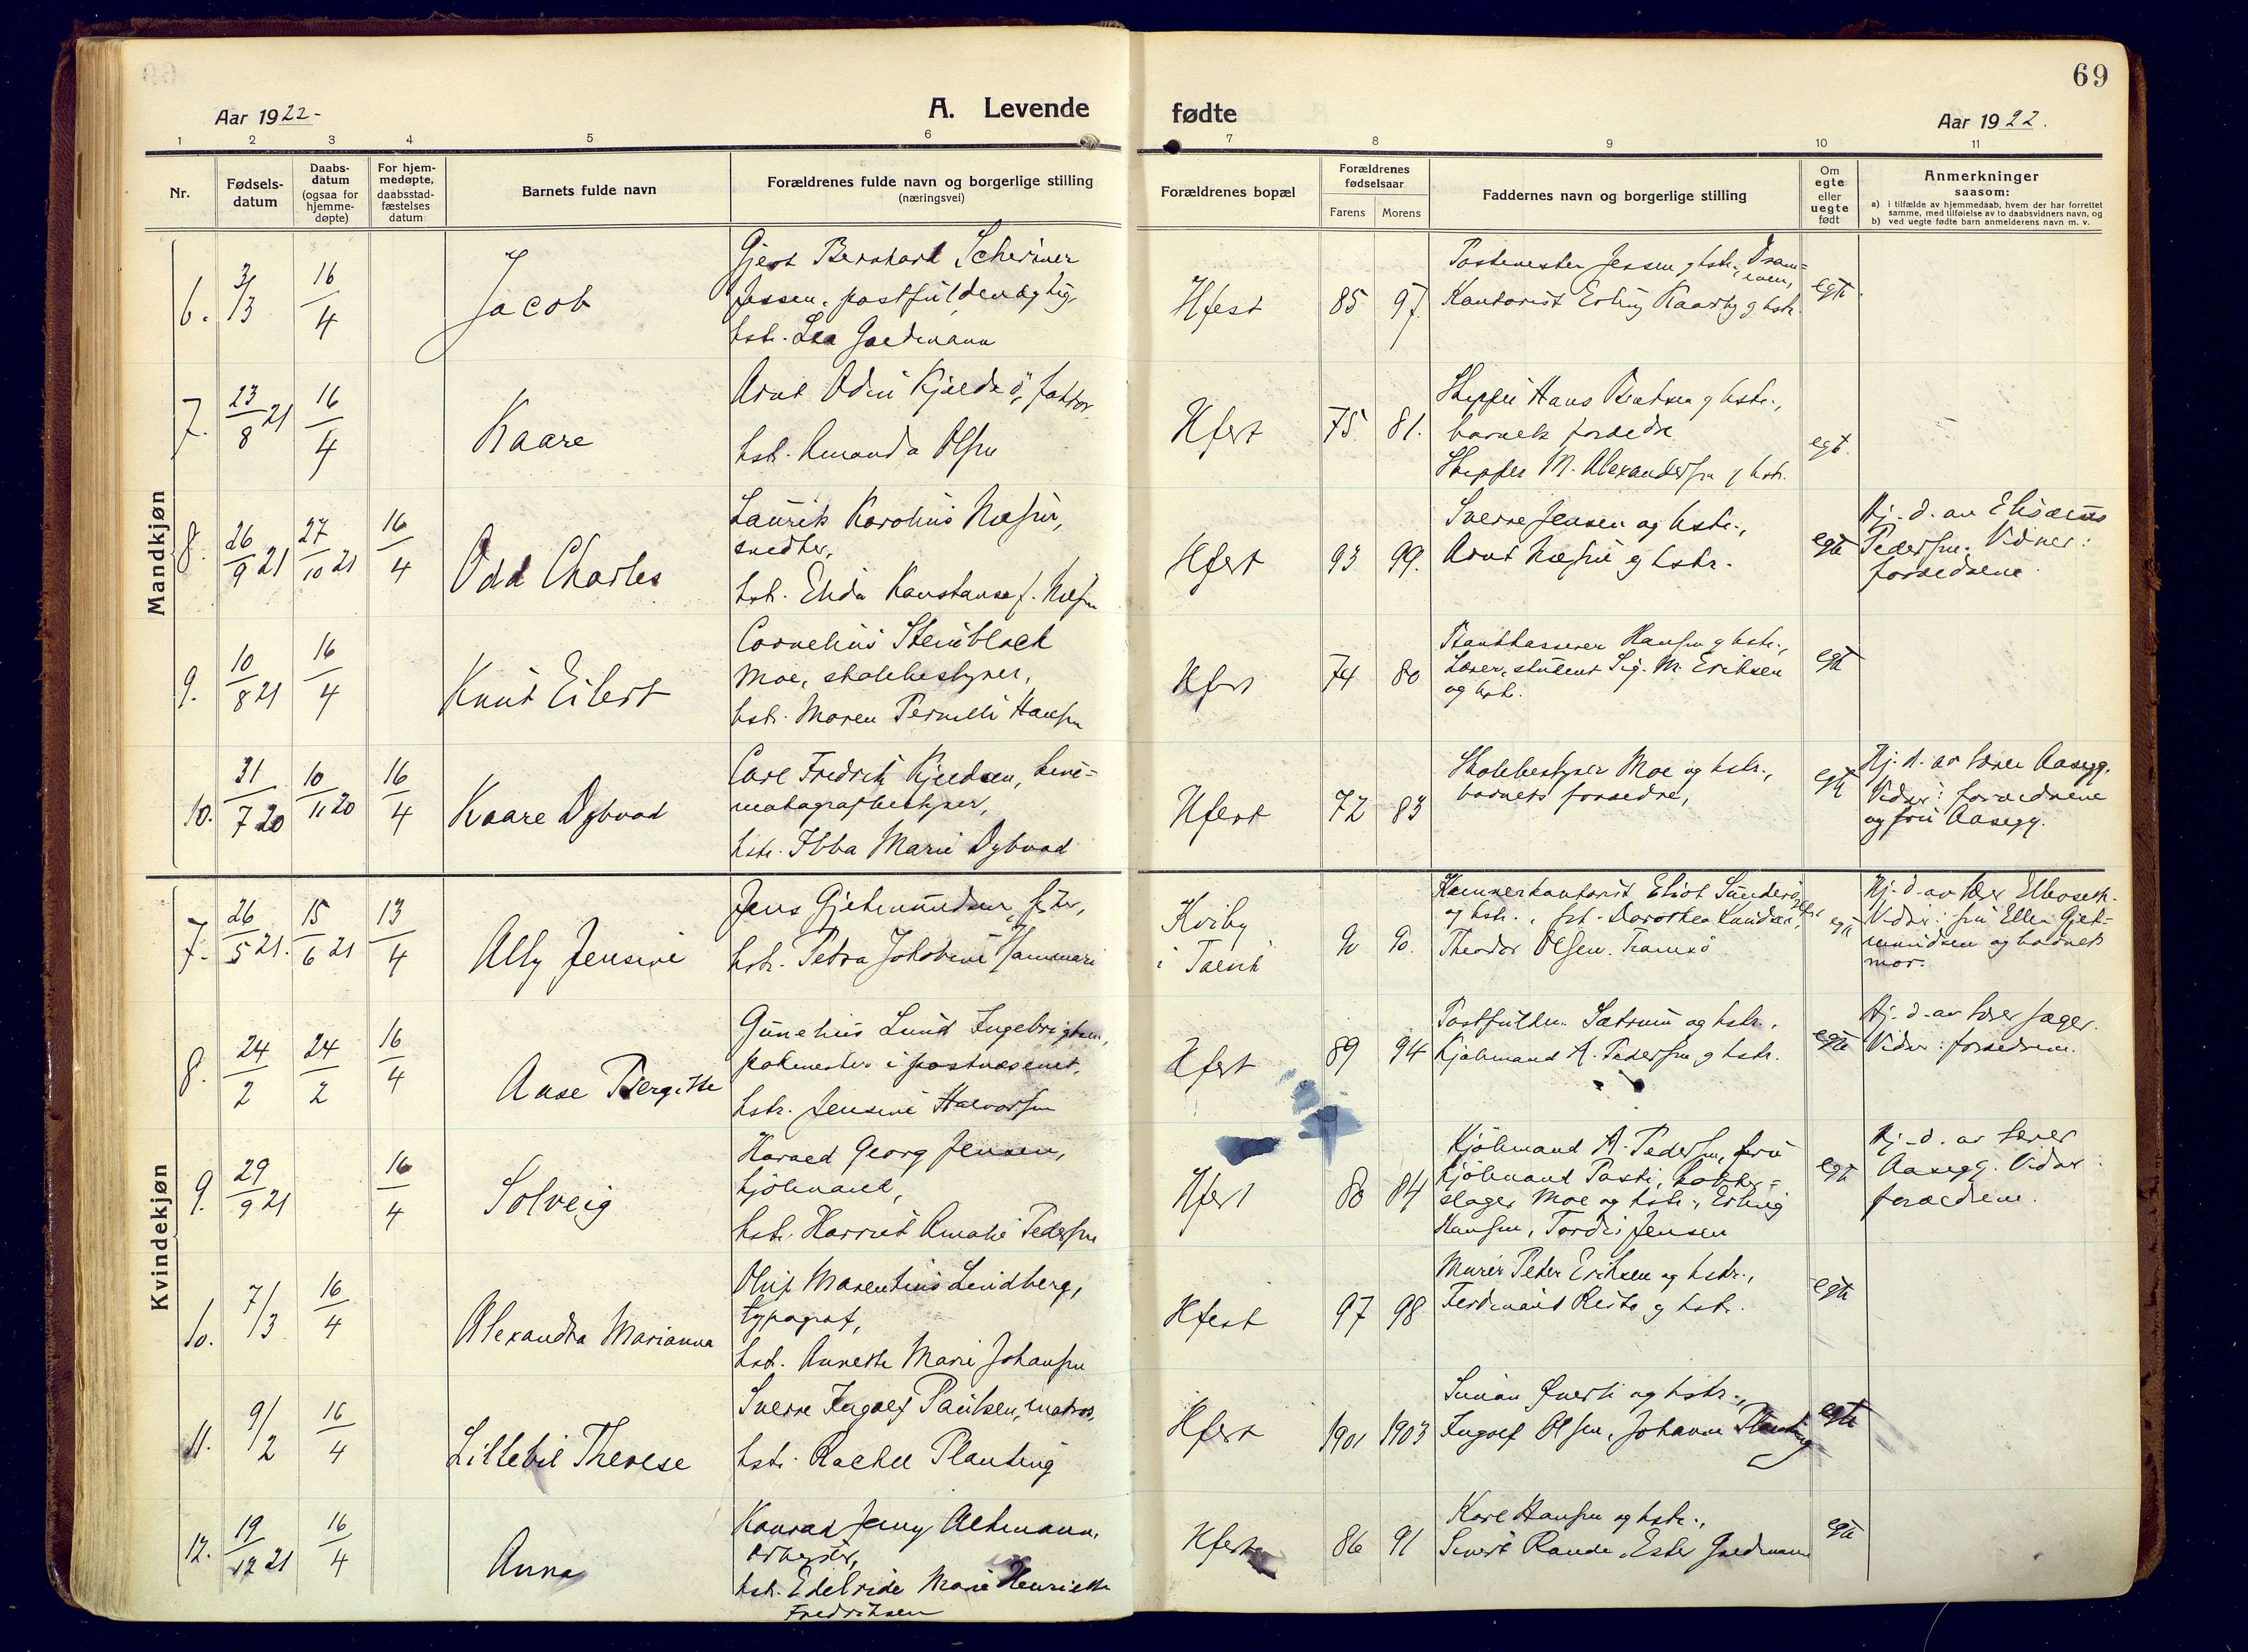 69
Aar 1922-
A. Levende
fødte
Aar 1922.
1 2 3 4 5 6 7 8 9 10 11
Nr.
Fødsels-
datum
Daabs-
datum
(ogsaa for
hjemme-
døpte)
For hjem-
medøpte,
daabsstad-
fæstelses
datum
Barnets fulde navn
Forældrenes fulde navn og borgerlige stilling
(næringsvei)
Forældrenes bopæl
Forældrenes
fødselsaar
Farens Morens
Faddernes navn og borgerlige stilling
Om
egte
eller
uegte
født
Anmerkninger
saasom:
a) i tilfælde av hjemmedaab, hvem der har forrettet
samme, med tilføielse av to daabsvidners navn, og
b) ved uegte fødte barn anmelderens navn m. v.
Mandkjøn
6. 3/3 16/4 Jacob
Gjert Bernhard Schriwer
Jessen, postfuldmægtig,
hstr. Lea Goedmann
Hfest 85 97.
Postmester Jessen og hstr., Dram-
men,
Kontorist Erling Kaarby og hstr.
egte
7. 23/8 21 16/4 Kaare
Arnt Odin Kjeldsö, faktor
hstr. Amanda Olsen
Hfest 75 81.
Skipper Hans Bentsen og hstr.,
barnets forældre
Skipper M. Alexandersen og hstr.
egt.
8. 26/9 21 27/10 21 16/4 Odd Charles
Laurits Karolius Næsen,
snedker,
hstr. Elida Konstanse f. Næsen
Hfest 93 99.
Sverre Jensen og hstr.,
Arnt Næsen og hstr.
egte
Hj. d. av Elisæus
Pedersen. Vidner:
forældrene
9. 10/8 21 16/4 Knut Eilert
Cornelius Stenbloch
Moe, skolebestyrer,
hstr. Maren Pernille Hansen
Hfest 74 80
Bankkasserer Hansen og hstr.,
Lærer, student Sig. M. Eriksen
og hstr.
egte
10. 31/7 20 10/11 20 16/4 Kaare Dybvad
Carl Fredrik Kjeldsen, kine-
matografbestyrer,
hstr. Ebba Marie Dybvad
Hfest 72 83
Skolebestyrer Moe og hstr.,
barnets forældre,
egte
Hj. d. av lærer Aasegg.
Vidner: forældrene
og fru Aasegg.
Kvindekjøn
7. 26/5 21. 15/6 21 13/4 Ally Jensine
Jens Gjetmundsen, fisker,
hstr. Petra Jakobine Hammari
Kviby
i Talvik 90 90.
Kæmnerkontorist Eliot Sundero
og hstr., frk. Dorothea Knudsen,
Theodor Olsen. Tromsö
egte
Hj. d. av lærer
Vidner: fru Ellen Gjet-
mundsen og barnets
mor.
8. 24/2 24/2 16/4 Aase Bergitte
Gunelius Lund Ingebrigtsen,
polmester i postvæsenet,
hstr. Jensine Halvorsen
Hfest 89 94
Postfuldm. Sætrum og hstr.,
Kjöbmand A. Pedersen og hstr.
egte
Hj. d. av lærer Jæger.
Vidner: forældrene.
9. 29/9 21 16/4 Solveig
Harald Georg Jensen,
kjöbmand,
hstr. Harriet Amalie Pedersen
Hfest 80 84
Kjöbmand A. Pedersen, fru
kjöbmand Pasti, kobber-
slager Moe og hstr., Erling
Hansen, Tordis Jensen
egte
Hj. d. av lærer
Aasegg. Vidner:
forældrene.
10. 7/3 16/4 Alexandra Marianna
Oluf Marentius Lindberg,
typograf,
hstr. Annette Marie Johansen
Hfest 97 98
Murer Peter Eriksen og hstr.,
Ferdinand Reite og hstr.
egte
11. 9/2 16/4 Lillebil Therese
Sverre Ingolf Paulsen, matros,
hstr. Rachel Planting
Hfest 1901 1903
Simon Qverli og hstr.,
Ingolf Olsen, Johanne Planting
egte
12. 19/12 21 16/4 Anna
Konrad Jeny Altmann,
arbeider,
hstr. Edelride Marie Henriette
Fredriksen
Hfest 86 91
Karl Hansen og hstr.,
Sivert Rande, Ester Goedmann
egte